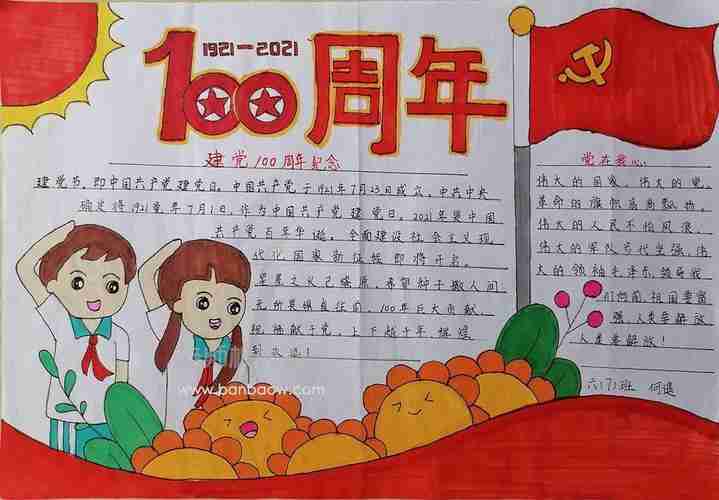 1921-2021
100周年
建党100周年纪念
建党节，即中国共产党建党日。中国共产党于1921年7月23日成立。中共中央
确定将1921年7月1日，作为中国共产党建党日。2021年是中国
共产党百年华诞。全面建设社会主义现
代化国家新征程即将开启。
星星之火已燎原，希望种子撒人间
无所畏惧自往因，100年巨大贡献，
献于党，上下越千年
到永远！
党在我心
伟大的国家，伟大的党，
革命的旗帜高高飘扬。
伟大的人民不怕风浪，
伟大的军队百代坚强，伟
大的领袖毛泽东领导我
们向前，祖国要富
强，人类要解放，
人类要解放！
六(7)班 何
www.banbaow.com